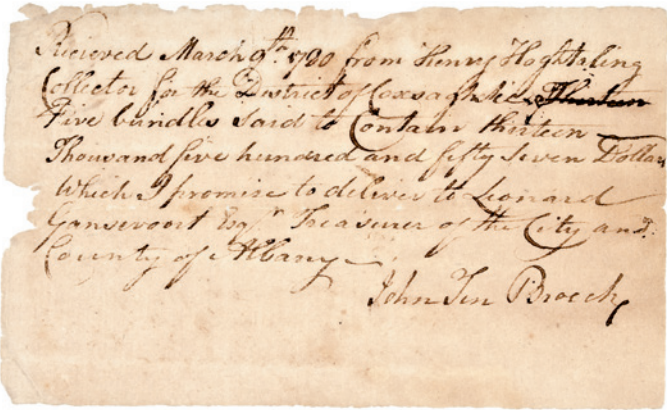 Recieved March 9th 1780 from Henry Hoghtaling
Collector for the District of Coxsaghkie, Thirteen
Five bundles said to Contain thirteen
Thousand five hundred and fifty seven Dollars
Which I promise to deliver to Leonard
Gansevoort Esqr. Treasurer of the City and
County of Albany
John Ten Broeck